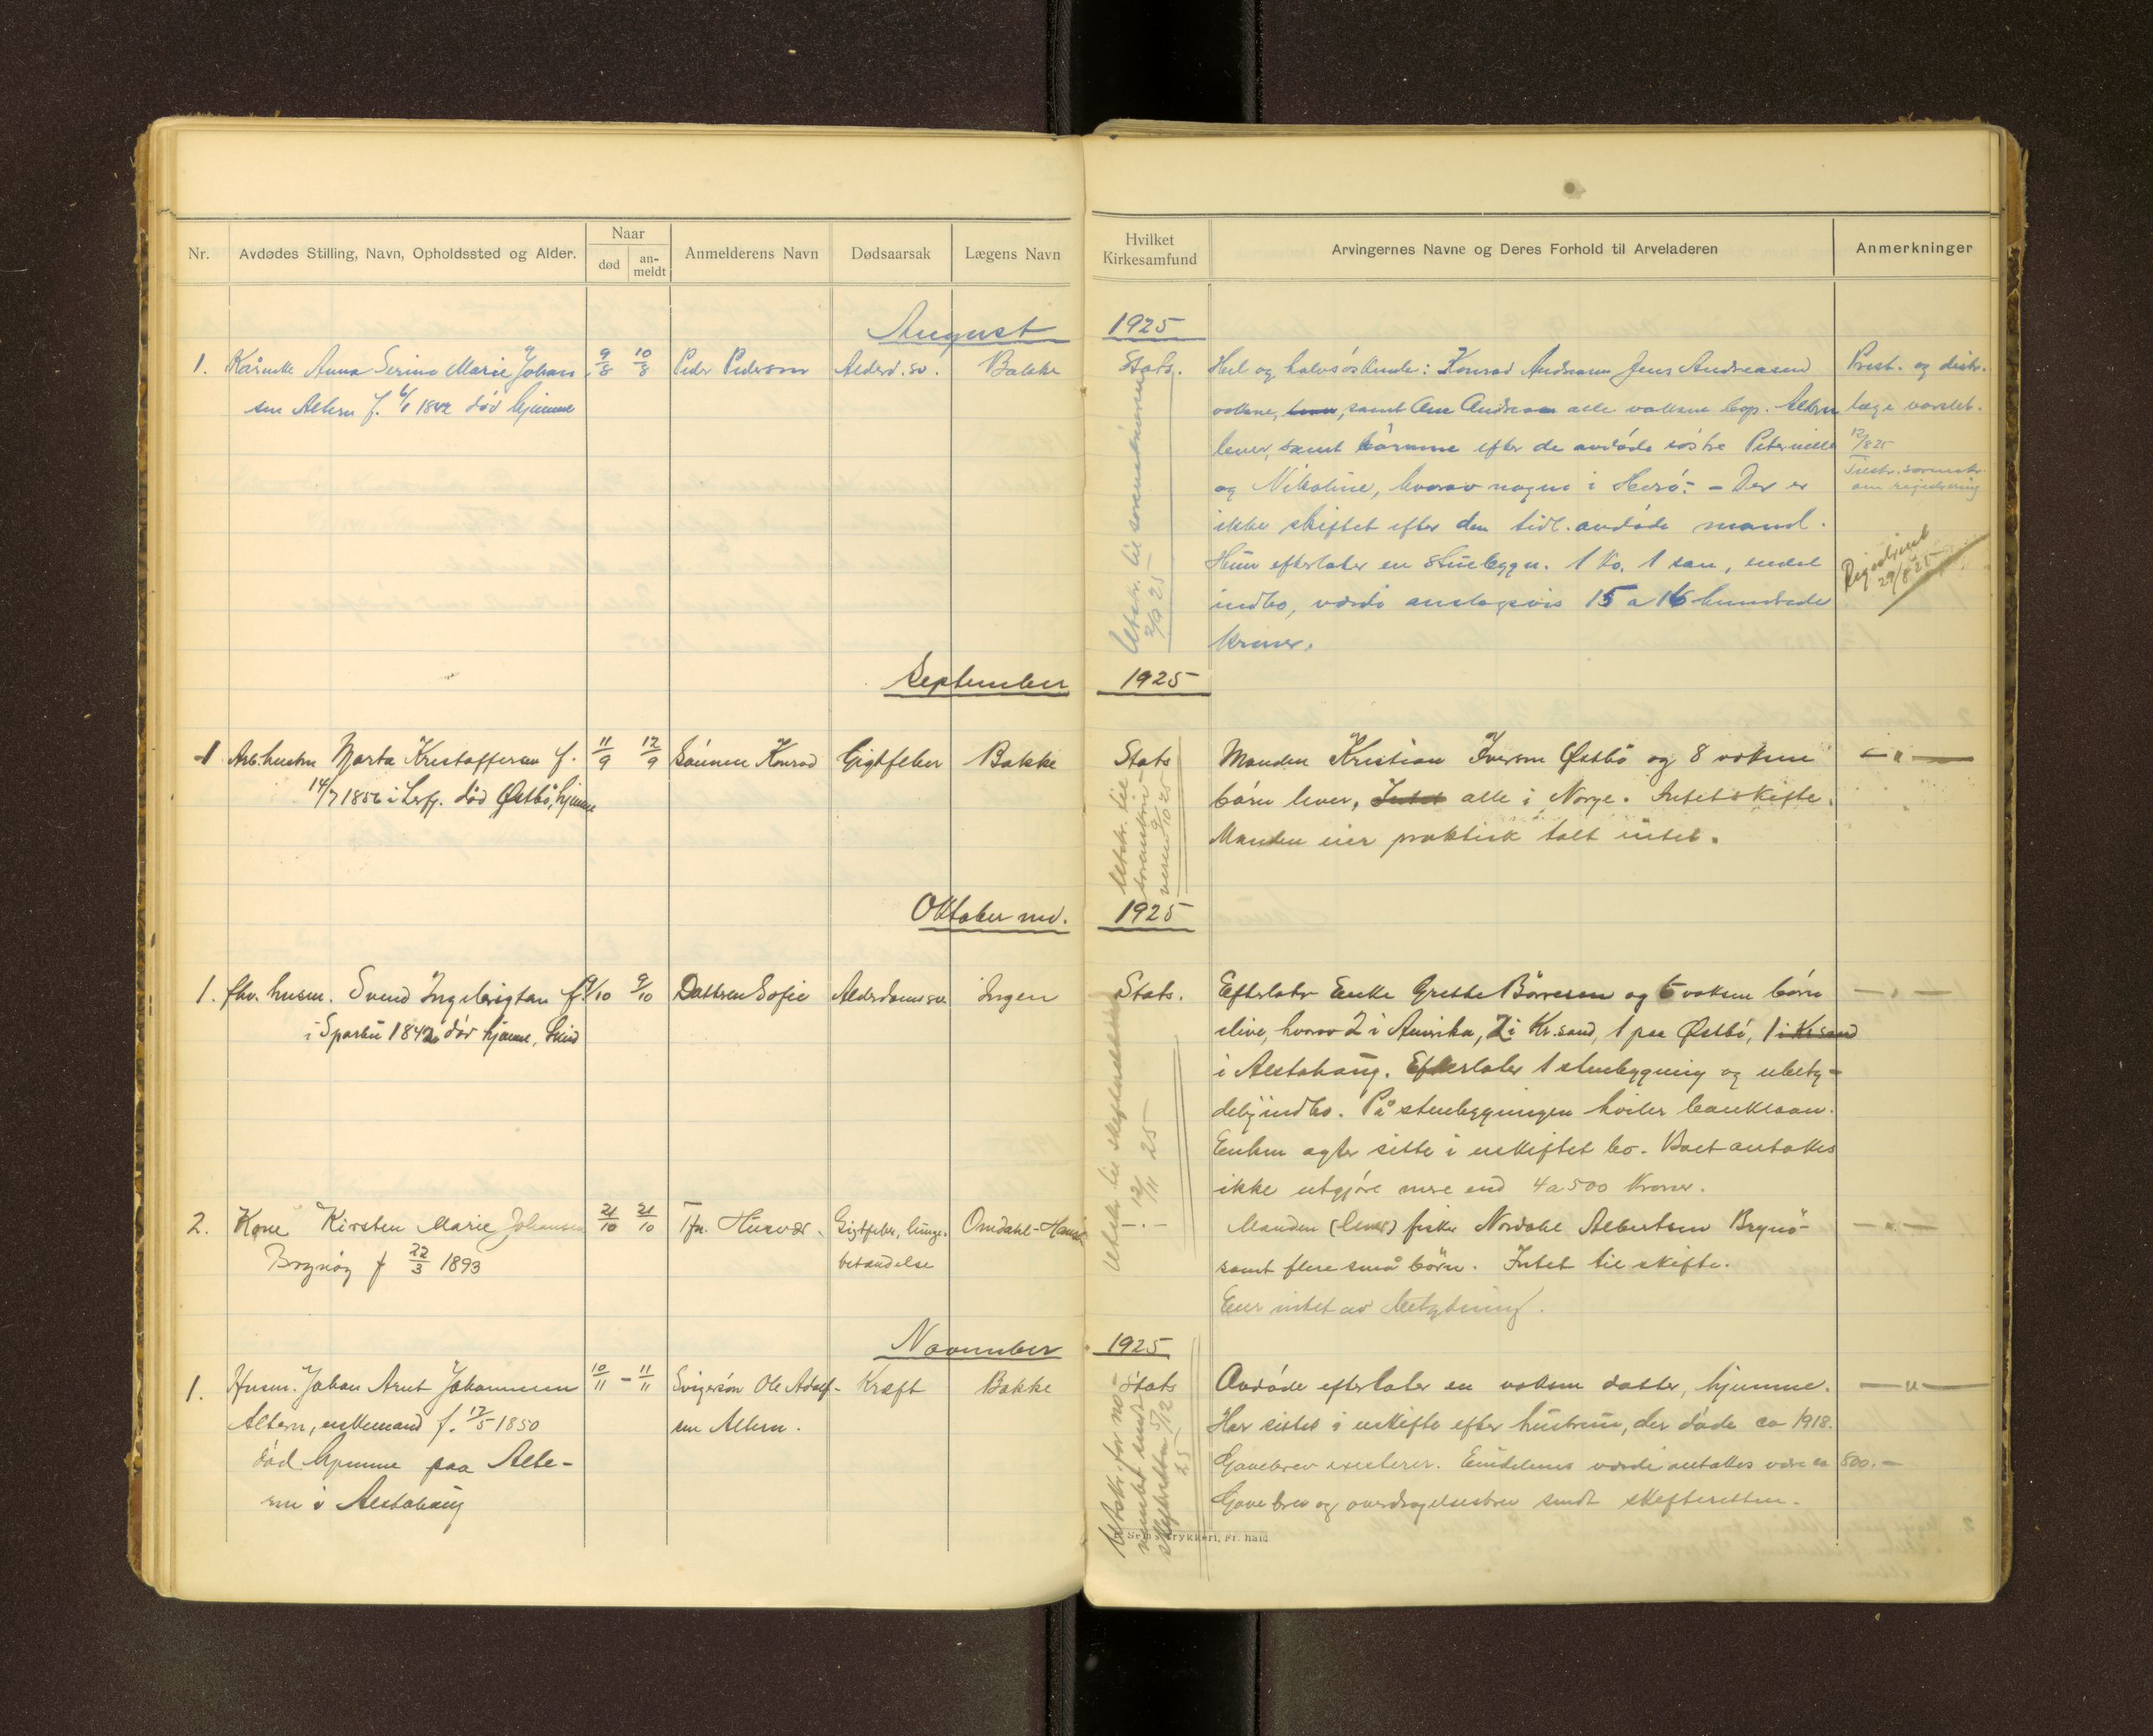 Nr.
Avdødes Stilling, Navn, Opholdssted og Alder.
Naar
død
an-
meldt
Anmelderens Navn
Dødsaarsak
Lægens Navn
Hvilket
Kirkesamfund
Arvingernes Navne og Deres Forhold til Arveladeren
Anmerkninger
August 1925
1. Anna Serine Marie Johan
sen Altern f. 6/1 1842 død hjemme
9/8 10/8 Peder Pedersen Alderd. sv. Bakke
Stats.
Hel og halvsøskende: Konrad Andreasen Jens Andreasen
voksne, samt Ane Andreasen alle voksne Altern
lever, samt børnene efter de avdøde søstre Peternille
og Nikoline, hvorav nogen i Herö. - Der er
ikke skiftet efter den tidl. avdøde mand.
Hun efterlater en stuebygn. 1 ko, 1 sau, endel
indbo, værdi anslagsvis 15 a 16 hundrede
kroner.
Prest. og distr.
læge varslet.
12/8 25
om registrering
Registrert
29/8 25
Utskr. til sorenskriveren
2/9 25
September 1925
1 Arb. hustru Marta Kristoffersen f.
14/7 1856 i Lerfj. død Østbö, hjemme
11/9 12/9 Sönnen Konrad Gigtfeber Bakke
Stats
Manden Kristian Iversen Østbö og 8 voksne
börn lever, Intet alle i Norge. Intet skifte.
Manden eier praktisk talt intet.
— " —
Utskr. til
sorenskri-
veren 9/10 25
Oktober md. 1925
1. fhv. husm. Svend Ingebrigtsen f.
i Sparbu 1842 död hjemme,
9/10 9/10 Datteren Sofie Alderdomssv. Ingen
Stats.
Efterlater Enke Grethe Börresen og 5 voksne börn
ilive, hvorav 2 i Amerika, 2 i Kr.sand, 1 paa Østbö, 1 i Kr.sand
i Alstahaug. Efterlater 1 stuebygning og ubety-
delig indbo. På stuebygningen hviler banklaan.
Enken agter sitte i uskiftet bo. Boet antakes
ikke utgjöre mere end 4 a 500 Kroner.
— " —
Utskr. til skifteretten
12/11 25
2. Kone Kirsten Marie Johansen
Brynöy f 22/3 1893
21/10 21/10 Tfn. Husvær. Gigtfeber, lunge-
betændelse
Omdahl-Hansen
— " —
Manden (lever) fisker Nordahl Albertsen Brynö
samt flere små börn. Intet til skifte.
Eier intet av betydning.
— " —
November 1925
1. Husm. Johan Arnt Johannesen
Altern, enkemand f. 12/5 1850
död hjemme paa Alte-
ren i Alstahaug
10/11 - 11/11 Svigersön Ole Adolf-
sen Altern.
Kræft Bakke
Stats
Avdöde efterlater en voksen datter, hjemme.
Har sittet i uskifte efter hustruen, der döde ca 1918.
Gavebrev existerer. Eiendelenes værdi antakes være ca 800.-
Gavebrev og overdragelsesbrev sendt skifteretten.
— " —
Utskr. for no-
vember sendt
skifteretten 5/12
25
trykkeri, Fr.hald